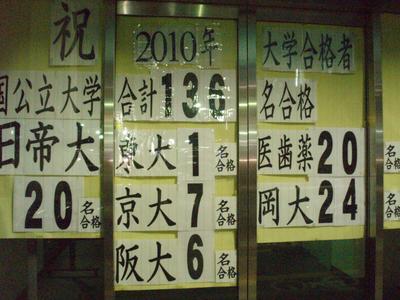 祝 2010年 大学合格者
国公立大学 合計136名合格
旧帝大 20名合格
東大1名合格
京大7名合格
阪大6名合格
医歯薬20名合格
岡大24名合格